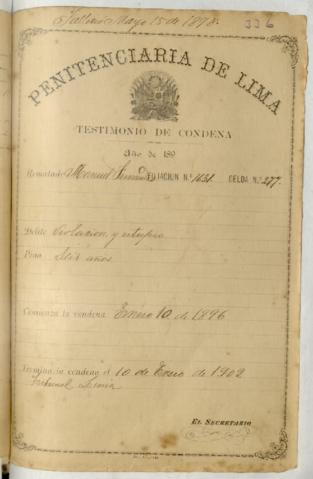 Falleció Mayo 15 de 1898.
336
PENITENCIARIA DE LIMA
TESTIMONIO DE CONDENA
Año de 189
Rematado Manuel FILIACION N.º 1631. CELDA N.º 277.
Delito Violación y estupro
Pena Seis años
Comienza la condena Enero 10 de 1896
Termina la condena el 10 de Enero de 1902
Tribunal
EL SECRETARIO